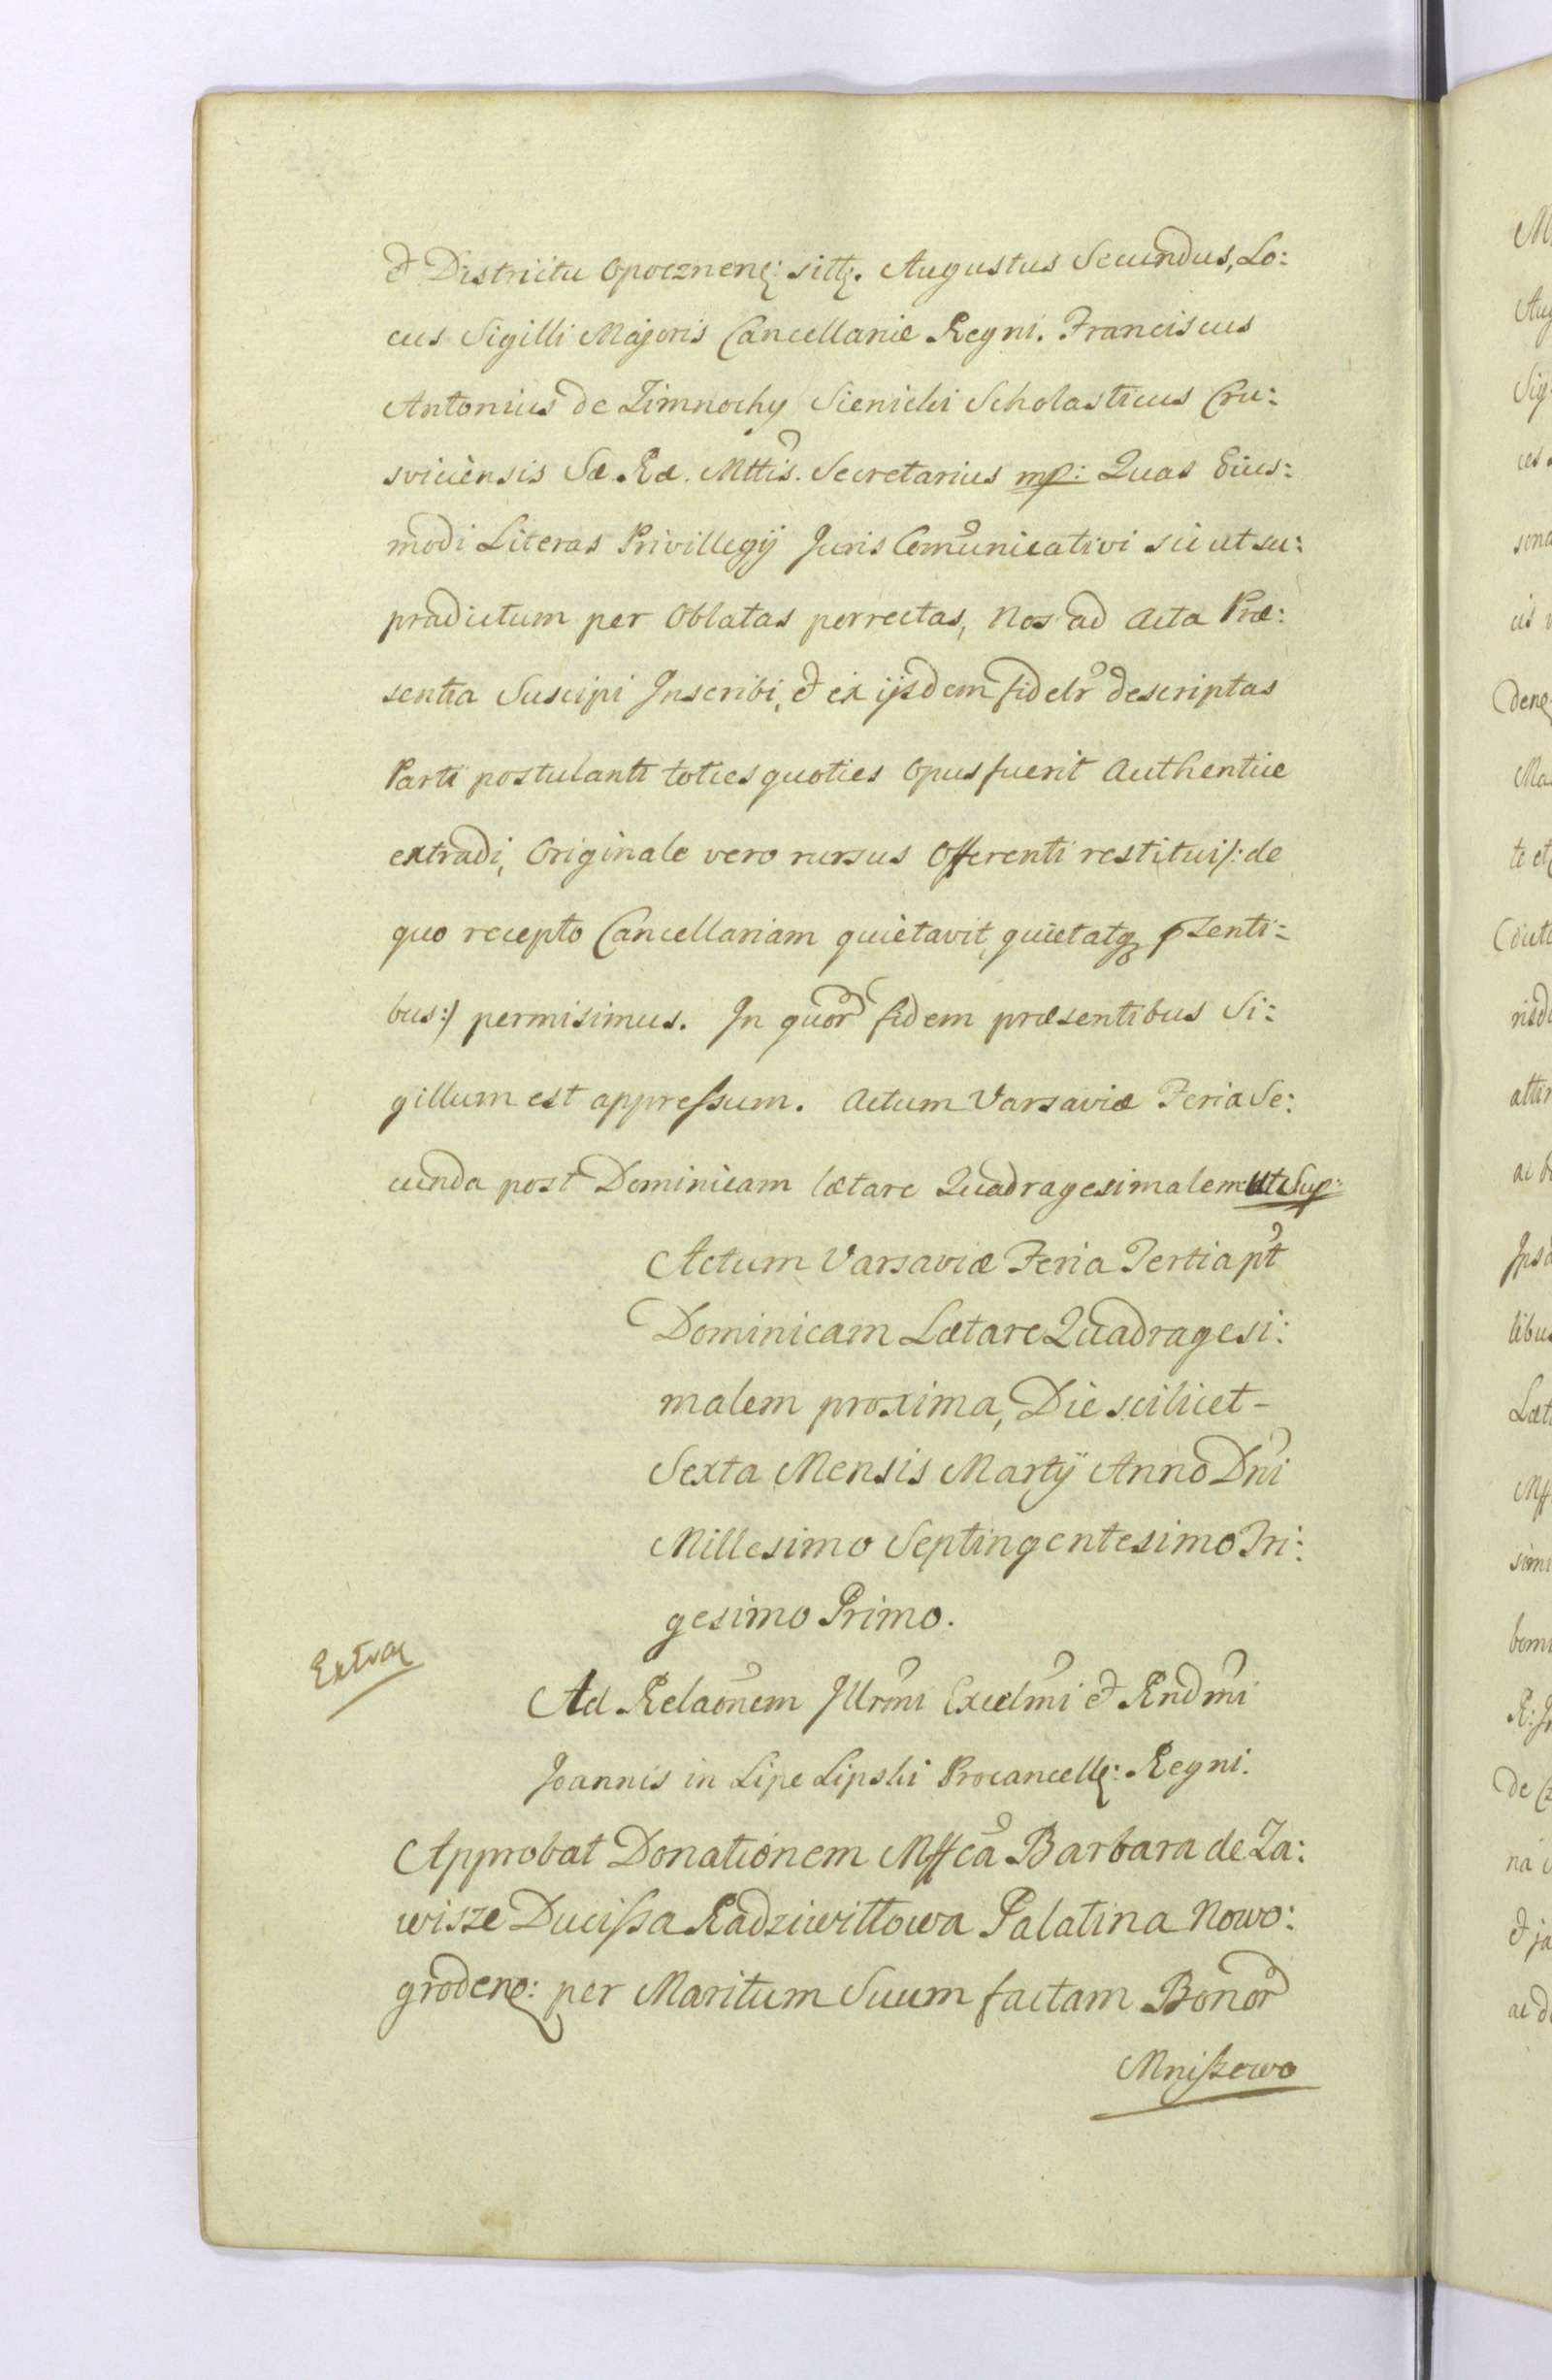 et Districtu Opocznen: sitt. Augustus Secundus, Lo:
cus Sigilli Majoris Cancellariæ Regni. Franciscus
Antonius de Zimnochy Sienicki Scholasticus Cru:
sviciensis Sæ. Ræ. Mttis. Secretarius mp: Quas Eius:
modi Literas Privillegij Juris Comunicativi sicut su:
pradictum per Oblatas porrectas, Nos ad Acta Præ:
sentia Suscipi Inscribi, et ex ijsdem fidelr descriptas
Parti postulanti toties quoties Opus fuerit Authentice
extradi, Originale vero rursus Offerenti restitui /: de
quo recepto Cancellariam quietavit, quietatq pzenti=
bus :/ permisimus. In quor fidem præsentibus Si:
gillum est appressum. Actum Varsaviæ Feria Se:
cunda post Dominicam lætare Quadragesimalem Ut Sup:
Actum Varsaviæ Feria Tertia pt
Dominicam Lætare Quadragesi:
malem proxima, Die scilicet -
Sexta Mensis Martij Anno Dni
Millesimo Septingentesimo Tri:
gesimo Primo.
Extra
Ad Relaonem Illrmi Excelmi et Rndmi
Joannis in Lipe Lipski Procancell: Regni.
Approbat Donationem Mffca Barbara de Za:
wisze Ducissa Radziwiłłowa Palatina Nowo:
groden: per Maritum Suum factam Bonor
Mniszewo
M
Aug
Sig